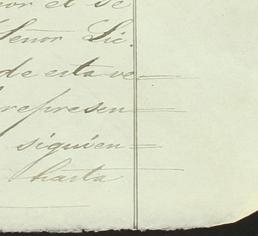 nor el Se
Señor Lic.
de esta ve=
represen=
siguien=
hasta